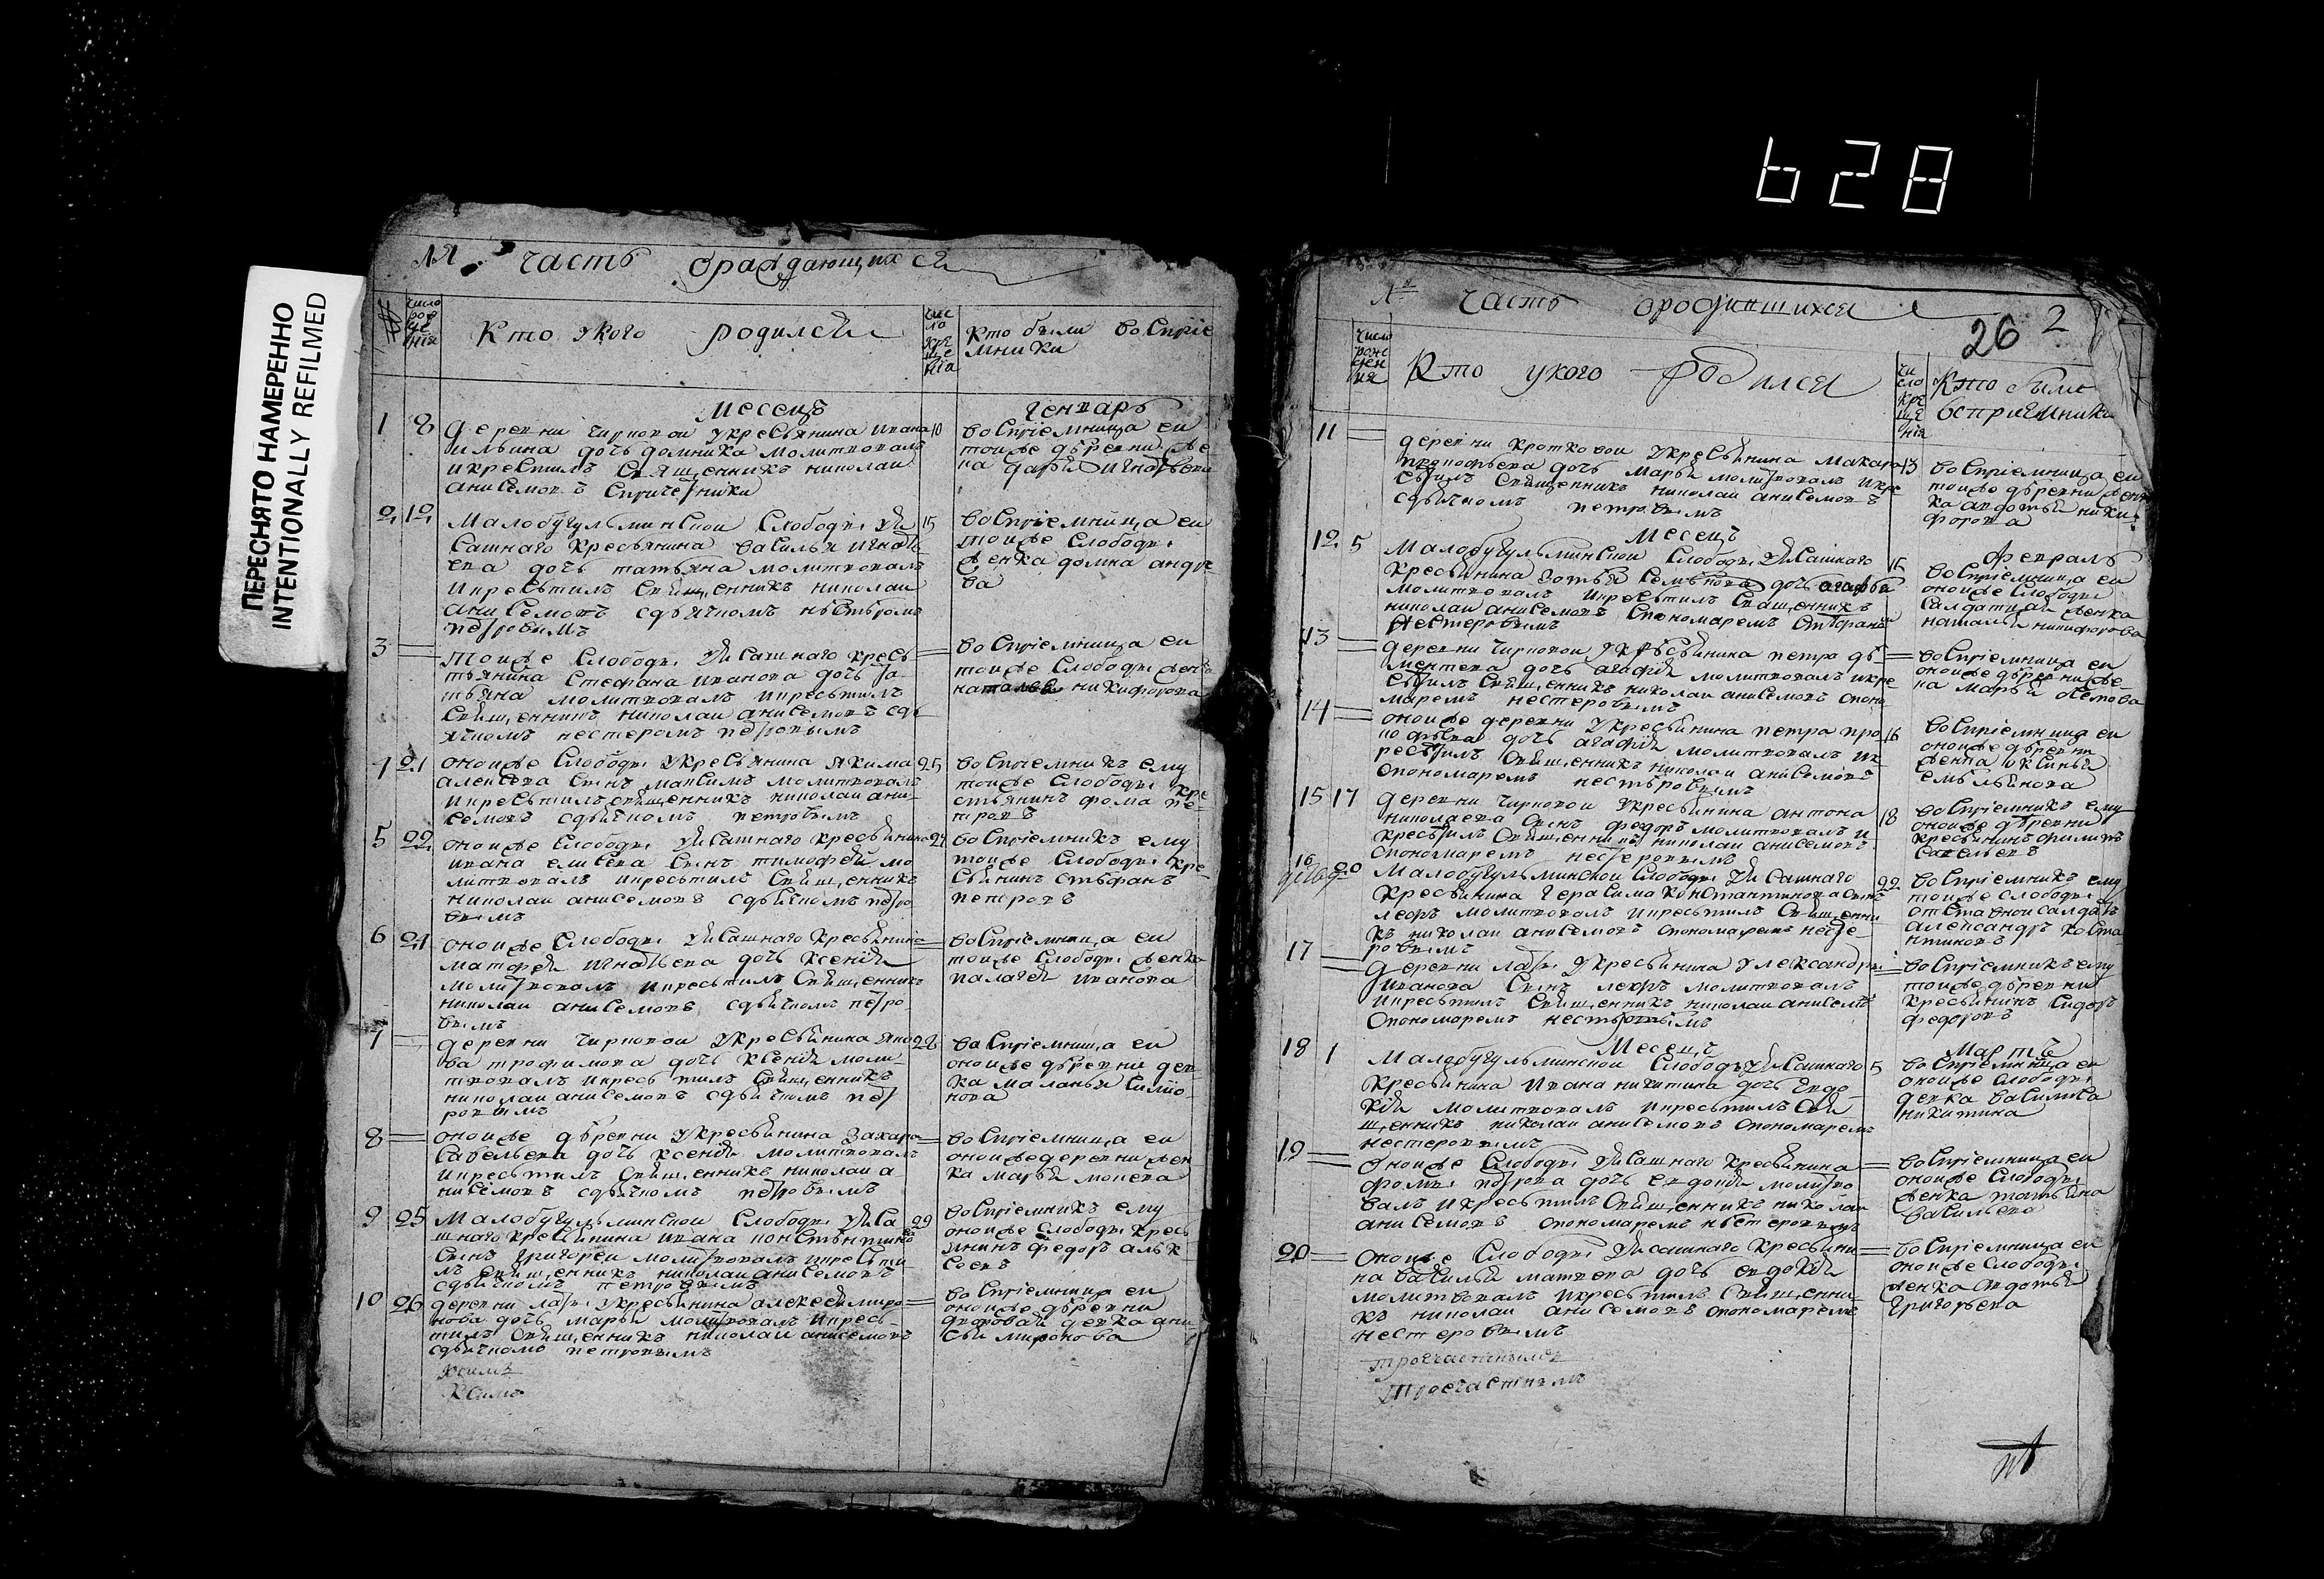 ПЕРЕСНЯТО НАМЕРЕННО
INTENTIONALLY REFILMED
628
часть ораждающихся
число рождения
Кто укого родился
число крещения
Кто были восприе
мники
Месецъ Генварь
1 8 деревни Чирковои укресьянина ивана 10
ильина дочь домника молитвовалъ
икрестилъ священникъ николаи
анисемовъ
восприемница еи
тоижъ деревни
2 12 Малобугульминскои слободы ясашнаго 15
кресьянина василья игнать
ева дочь татьяна молитвовалъ
икресьтилъ священникъ николаи
анисемовъ здьячкомъ нестъромъ
петровымъ
восприемница еи
тоиже слободы
девка домна андре
ва
3 тоиже слободы ясашнаго кресь
тьянина стефана иванова дочь та
тьяна молитвовалъ икресьтилъ
священникъ николаи анисемовъ здь
ячкомъ нестеромъ петровымъ
восприемница еи
тоиже слободы девка
наталья никифорова
4 21 оноиже слободы укресьянина якима 25
алексева сынъ максимъ молитвовалъ
икресьтилъ священникъ николаи ани
семовъ здьячкомъ петровымъ
восприемникъ ему
тоиже слободы кре
стьянинъ фома пе
тровъ
5 22 оноиже слободы ясашнаго кресьянина 24
ивана елисева сынъ тимофей мо
литвовалъ икресьтилъ священникъ
николаи анисемовъ здьячкомъ петро
вымъ
восприемникъ ему
тоиже слободы кре
сьянинъ стефанъ
петровъ
6 24 оноиже слободы ясашнаго кресьянина
матфея игнатьева дочь ксения
молитвовалъ икресьтилъ священникъ
николаи анисемовъ здьячкомъ петро
вымъ
восприемница еи
тоиже слободы девка
палагея иванова
7 деревни чирковои укресьянина яко 28
ва трофимова дочь ксения моли
твовалъ икресьтилъ священникъ
николаи анисемовъ здьячкомъ пет
ровымъ
васприемница еи
оноиже деревни дев
ка маланья симио
нова
8 оноиже деревни укресьянина захара
савельева дочь ксения молитвовалъ
икресьтилъ священникъ николаи а
нисемовъ здьячкомъ петровымъ
восприемница еи
оноиже деревни дев
ка марья
9 25 Малобугульминскои слободы яса
шнаго кресьянина ивана констентинова 29
сынъ григореи молитвовалъ икресьти
лъ священникъ николаи анисемовъ
здьячкомъ петровымъ
восприемникъ ему
оноиже слободы кресь
янинъ федоръ алек
сеевъ
10 26 деревни укресьянина алексея миро
нова дочь марья молитвовалъ икресь
тилъ священникъ николаи анисемовъ
здьячкомъ петровымъ
восприемница еи
оноиже деревни
дворовая девка ани
сья миронова
часть ородившихся
26 2
число рожденія
Кто укого родился
число крещения
Кто были
восприемники
11 деревни кротковои укресьянина макара 13
прокофьева дочь марья молитвовалъ икре
сьтилъ священникъ николаи анисемовъ
здьячкомъ петровымъ
восприемница еи
тоиже деревни дев
ка авдотья ники
форова
Месецъ февраль
12 5 Малобугульминскои слободы ясашнаго
кресьянина зотея семенова дочь агафья
молитвовалъ икресьтилъ священникъ
николаи анисемовъ спономаремъ
нестеровымъ
восприемница еи
оноиже слободы
салдатцая девка
наталья никифорова
13 деревни чирковои укресьянина петра дѣ
ментева дочь агафия молитвовалъ икре
сьтилъ священникъ николаи анисемовъ споно
маремъ нестеровымъ
восприемница еи
оноиже деревни де
вка марья осипова
14 оноиже деревни укресьянина петра про 16
кофьева дочь агафия молитвовалъ ик
ресьтилъ священникъ николаи анисемовъ
спономаремъ нестеровымъ
восприемница еи
оноиже деревни
девка
емельянова
15 17 деревни чирковои укресьянина антона 18
николаева сынъ федоръ молитвовалъ и
кресьтилъ священникъ николаи анисемовъ
спономаремъ нестеровымъ
восприемникъ ему
оноиже деревни
кресьянинъ филипъ
савельевъ
16 20 Малобугульминскои слободы ясашнаго 22
кресьянина герасима константинова сынъ
леонъ молитвовалъ икресьтилъ священни
къ николаи анисемовъ спономаремъ несте
ровымъ
восприемникъ ему
тоиже слободы
отставнои салдатъ
александръ коста
нтиновъ
17 деревни укресьянина александры
иванова сынъ леонъ молитвовалъ
икресьтилъ священникъ николаи анисемовъ
спономаремъ нестеровымъ
восприемникъ ему
тоиже деревни
кресьянинъ сидоръ
федоровъ
Месецъ Мартъ
18 1 Малобугульминскои слободы ясашнаго 5
кресьянина ивана никитина дочь евдо
кия молитвовалъ икресьтилъ свя
щенникъ николаи анисемовъ спономаремъ
нестеровымъ
восприемница еи
оноиже слободы
девка василиса
никитина
19 оноиже слободы ясашнаго кресьянина
фомы петрова дочь евдокия молитво
валъ икресьтилъ священникъ николаи
анисемовъ спономаремъ нестеровымъ
восприемница еи
оноиже слободы
девка татьяна
васильева
20 оноиже слободы ясашнаго кресьяни
на василья матвева дочь евдокия
молитвовалъ икресьтилъ священни
къ николаи анисемовъ спономаремъ
нестеровымъ
восприемница еи
оноиже слободы
девка авдотья
григорьева